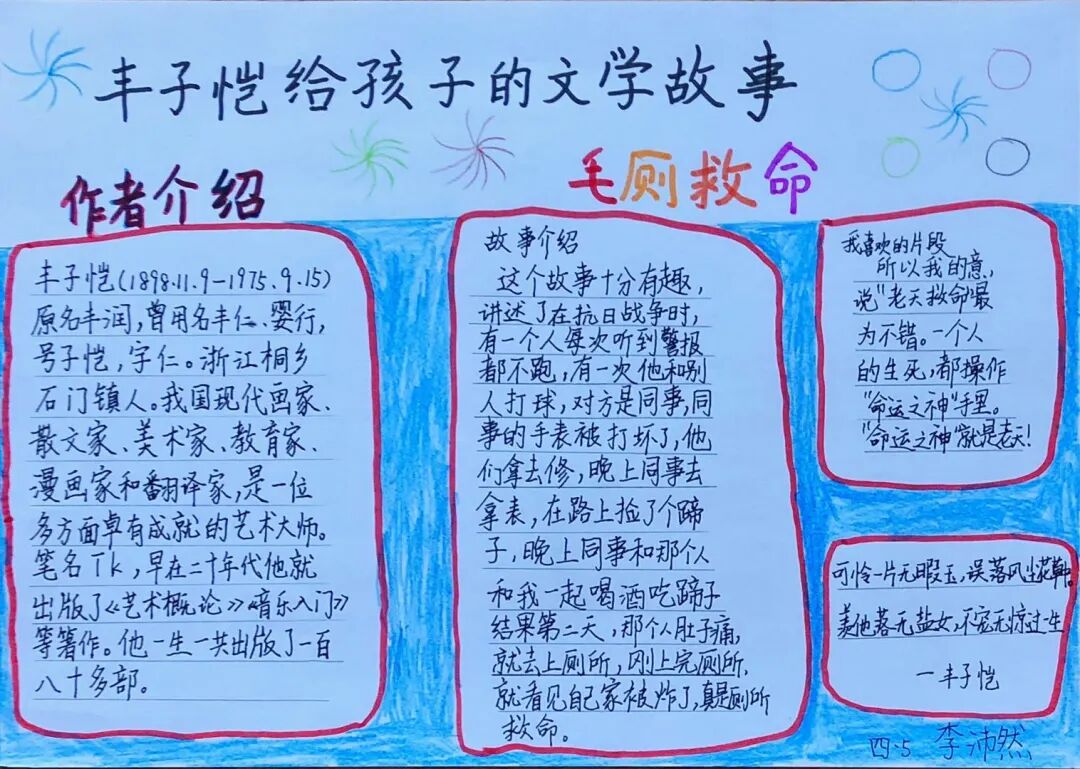 丰子恺给孩子的文学故事
作者介绍
丰子恺(1898.11.9—1975.9.15)
原名丰润,曾用名丰仁、婴行,
号子恺,字仁。浙江桐乡
石门镇人。我国现代画家、
散文家、美术家、教育家、
漫画家和翻译家,是一位
多方面卓有成就的艺术大师。
笔名Tk,早在二十年代他就
出版了《艺术概论》《音乐入门》
等著作。他一生一共出版了一百
八十多部。
毛厕救命
故事介绍
这个故事十分有趣,
讲述了在抗日战争时,
有一个人每次听到警报
都不跑,有一次他和别
人打球,对方是同事,同
事的手表被打坏了,他
们拿去修,晚上同事去
拿表,在路上捡了个蹄
子,晚上同事和那个人
和我一起喝酒吃蹄子
结果第二天,那个人肚子痛,
就去上厕所,刚上完厕所,
就看见自己家被炸了,真是厕所
救命。
我喜欢的片段
所以我的意,
说"老天救命"最
为不错。一个人
的生死,都操作
"命运之神"手里。
"命运之神"就是老天!
可怜一片无暇玉,误落风尘花
羡他落无盐女,不宠无惊过一生
一丰子恺
四.5 李沛然